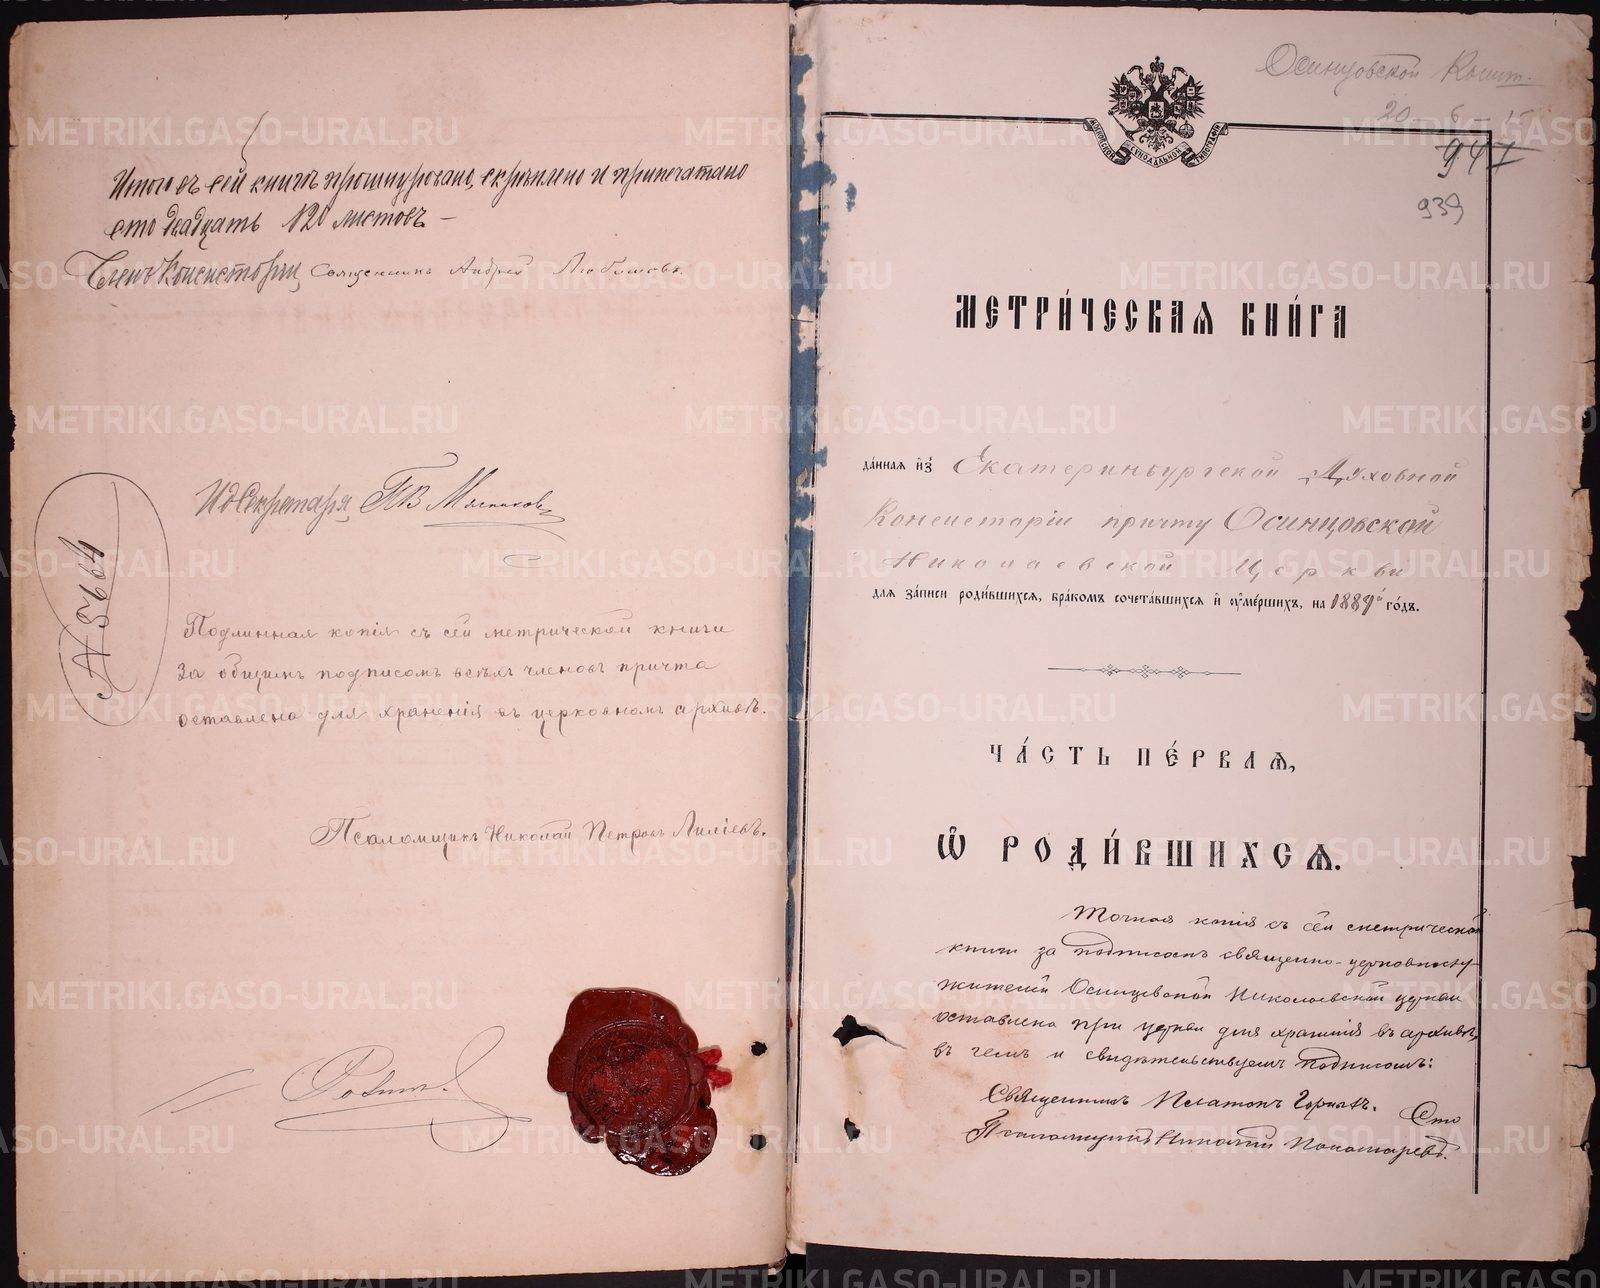 Итого въ сей книгѣ прошнуровано, скрѣплено и припечатано
сто двадцать 120 листовъ
Членъ Консисторіи, Священникъ Андрей
И д Секретаря, ПВ
№ 5664
Подлинная копія съ сей метрической книги
за общимъ подписомъ всѣхъ членовъ причта
оставлена для храненія въ церковномъ архивѣ.
Псаломщикъ Николай Петровъ Лиліевъ.
Осинцовской
МОСКОВСКОЙ СѴНОДАЛЬНОЙ ТИПОГРАФІИ
947
939
МЕТРИ́ЧЕСКАЯ КНИ́ГА
да́нная и҆зъ Екатеринбургской Духовной
Консисторіи причту Осинцовской
Николаевской Церкви
для за́писи роди́вшихся, бра́комъ сочета́вшихся и҆ оу҆ме́ршихъ, на 1889й го́дъ.
ЧА́СТЬ ПЕ́РВАЯ,
Ѽ РОДИ́ВШИХСЯ.
Точная копія съ сей метрической
книги за подписомъ священно-церковнослу-
жителей Осинцевской Николаевской церкви
оставлена при церкви для храненія въ архивѣ,
въ чемъ и свидѣтельствуемъ подписомъ:
Священникъ Платонъ
Псаломщикъ Николай Пономаревъ.
METRIKI.GASO-URAL.RU